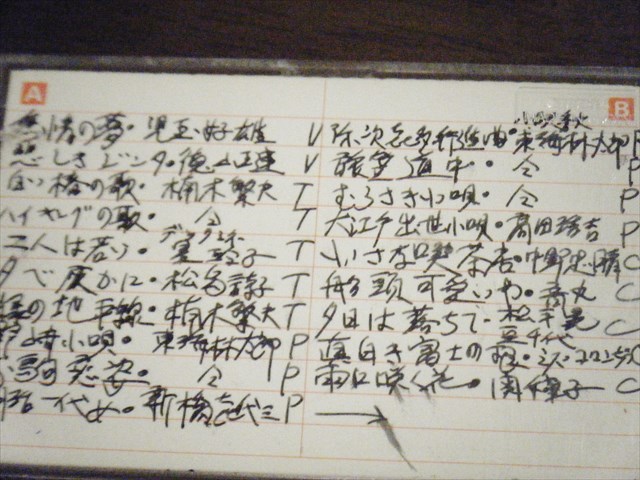 A
無情の夢・児玉好雄 V
悲しきジンタ・徳山璉 V
白い椿の歌・楠木繁夫 T
ハイキングの歌・仝 T
二人は若い・ディックミネ 星玲子 T
夕べ仄かに・松島詩子 T
緑の地平線・楠木繁夫 T
野崎小唄・東海林太郎 P
お駒恋姿・仝 P
一代女・新橋喜代三 P
B
弥次喜多行進曲・東海林太郎 P
旅笠道中・仝 P
むらさき小唄・仝 P
大江戸出世小唄・高田浩吉 P
小さな喫茶店・中野忠晴 C
船頭可愛いや・音丸 C
夕日は落ちて・松平晃 豆千代 C
真白き富士の C
雨に咲く花・関種子 C